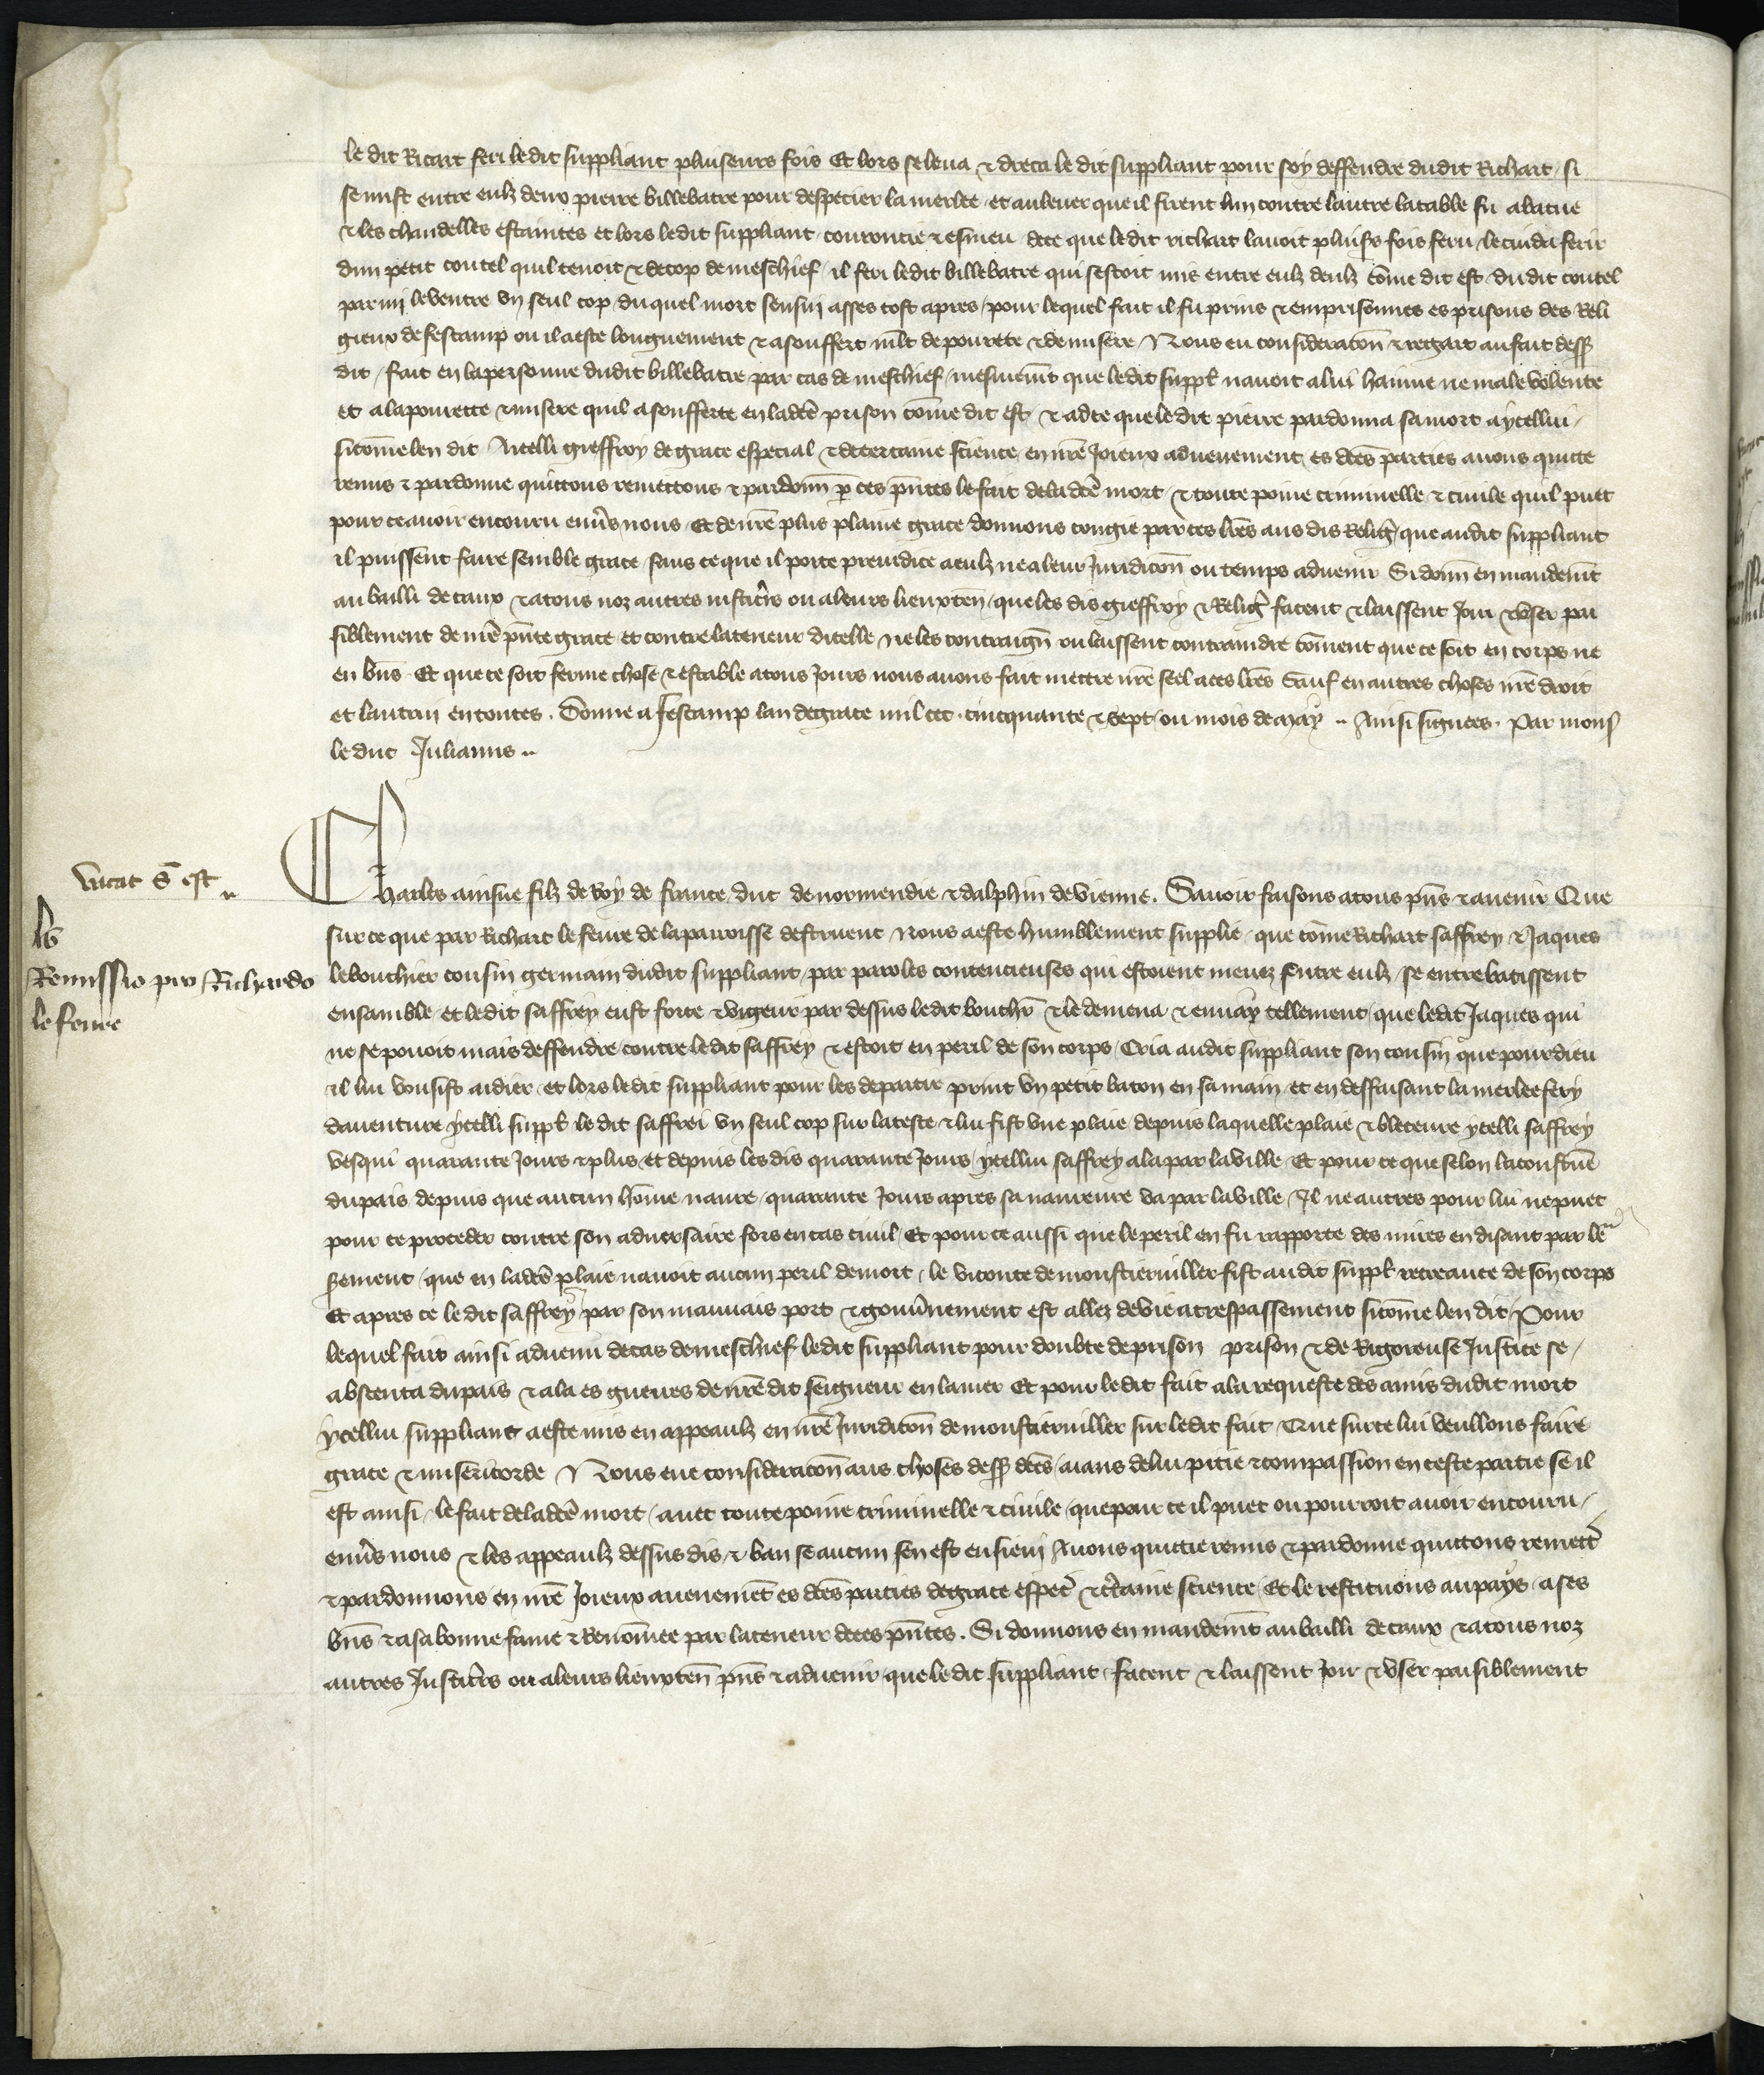 le dit Ricart feri le dit suppliant pluseurs fois Et lors se leua & dreca le dit suppliant pour soy deffendre dudit Richart / si
se mist entre eulz deux pierre billebatre pour despecier la merlee / et au leuer que il firent lun contre lautre la table fu abatue
& les chandelles estaintes et lors ledit suppliant courroucie & esmeu de ce que ledit richart lauoit plus̃rs fois feru / le cuida ferir
dun petit coutel quil tenoit & de cop de meschief / il feri ledit billebatre qui sestoit mis entre eulz deulz cõme dit est / dudit coutel
parmi le ventre vn seul cop / duquel mort sensui asses tost apres / pour lequel fait il fu prins & emprisonnes es prisons des Reli
gieux de fescamp ou il a este longuement & a souffert ml̃t de pourete & de misere / Nous eu consideracõn & regart au fait dess9
dit / fait en la personne dudit billebatre par cas de meschief / mesmem̃t que ledit suppl̃ nauoit a lui hainne ne male volente
et a la pourette & misere quil a soufferte en lad̃ce prison cõme dit est & ad ce que le dit pierre pardonna sa mort a ycellui /
si cõme len dit / Aicelli gieffroy de grace especial & de certaine science en nr̃e Joieux aduenement es d̃ces parties auons quicte
remis & pardonne quittons remettons & pardonñ p ces p̃ntes le fait de lad̃ce mort & toute poine criminelle & ciuile quil puet
pour ce auoir encouru enũs nous / Et de nr̃e plus plaine grace donnons congie par ces lr̃es aus dis Relig̃ / que audit suppliant
il puissent faire semble grace / sans ce que il porte preiudice a eulz ne a leur Juridicõn ou temps aduenir Si donñ en mandem̃t
au bailli de caux & a tous noz autres iustic̃rs ou a leurs lieuxteñ / que les dis gieffroy & Relig̃ facent & laissent Joir & vser pai
siblement de nr̃e p̃nte grace / et contre la teneur dicelle ne les contraigñ ou laissent contraindre cõment que ce soit en corps ne
en bñs Et que ce soit ferme chose & estable a tous Jours nous auons fait mettre nr̃e seel a ces lr̃es Sauf en autres choses nr̃e droit
et lautrui en toutes . Donne a fescamp lan de grace mil ccc . cincquante & sept / ou mois de may .. Ainsi signees . Par mons̃
le duc Julianus ..
Charles ainsne filz de Roy de france / duc de normendie & dalphin de vienne . Sauoir faisons a tous p̃ns & auenir Que
vacat s̃ est ..
sur ce que par Richart le feure de la parroisse destruent Nous a este humblement supplie / que cõme Richart saffrey & Jaques
Remissio pro Richardo
le bouchier cousin germain dudit suppliant / par paroles contencieuses qui estoient meuez entre eulz / se entrebatissent
le feure
ensamble / et ledit saffrey eust force & vigeur par dessus ledit bouch̃r & le demena & enuay tellement / que ledit Jaques qui
ne se pouoit mais deffendre contre ledit saffrey & estoit en peril de son corps / Cria audit suppliant son cousin que pour dieu
il lui vousist aidier et lors ledit suppliant pour les departir print vn petit baton en sa main / et en deffaisant la merlee fery
dauenture ycelli suppl̃ le dit saffrei vn seul cop sur la teste & lui fist vne plaie depuis laquelle plaie & bleceure ycelli saffrey
vesqui quarante Jours & plus / et depuis les dis quarante Jours / ycellui saffrey ala par la ville / Et pour ce que selon la coustum̃e
du pais depuis que aucun hõme naure / quarante Jours apres sa naureure va par la ville / Il ne autres pour lui ne puet
pour ce proceder contre son aduersaire fors en cas ciuil / Et pour ce aussi que le peril en fu rapporte des mires en disant par le
serement / que en lad̃ce plaie nauoit aucun peril de mort / le viconte de monstieruiller fist audit suppl̃ recreance de son corps
Et apres ce le dit saffrey par son mauuais port & gouũnement est allez de vie a trespassement si cõme len dit / Pour
lequel fait ainsi aduenu de cas de meschief ledit suppliant pour doubte de prison prison & de Rigoreuse Justice se /
absenta du pais & ala es guerres de nr̃e dit seigneur en la mer Et pour ledit fait a la requeste des amis dudit mort
ycellui suppliant a este mis en appeaulz en nr̃e Juridicõn de monstieruiller sur ledit fait / Que sur ce lui veullons faire
grace & misericorde Nous eue consideracõn aus choses dess9 d̃ces / aians de lui pitie & compassion en ceste partie se il
est ainsi / le fait de lad̃ce mort / auec toute poine criminelle & ciuile / que pour ce il puet ou pourroit auoir encouru /
enũs nous & les appeaulz dessus dis / & ban se aucun sen est ensieui Auons quictie remis & pardonne quittons remett̃
& pardonnons en nr̃e Joieux auenem̃et es d̃ces parties de grace esp̃ec & c̃taine science / Et le restituons au pays / a ses
bñs & a sa bonne fame & Renõmee par la teneur de ces p̃ntes . Si donnons en mandem̃t au bailli de caux & a tous noz
autres Justic̃rs ou a leurs lieuxteñ p̃ns & aduenir / que le dit suppliant facent & laissent Joir & vser paisiblement